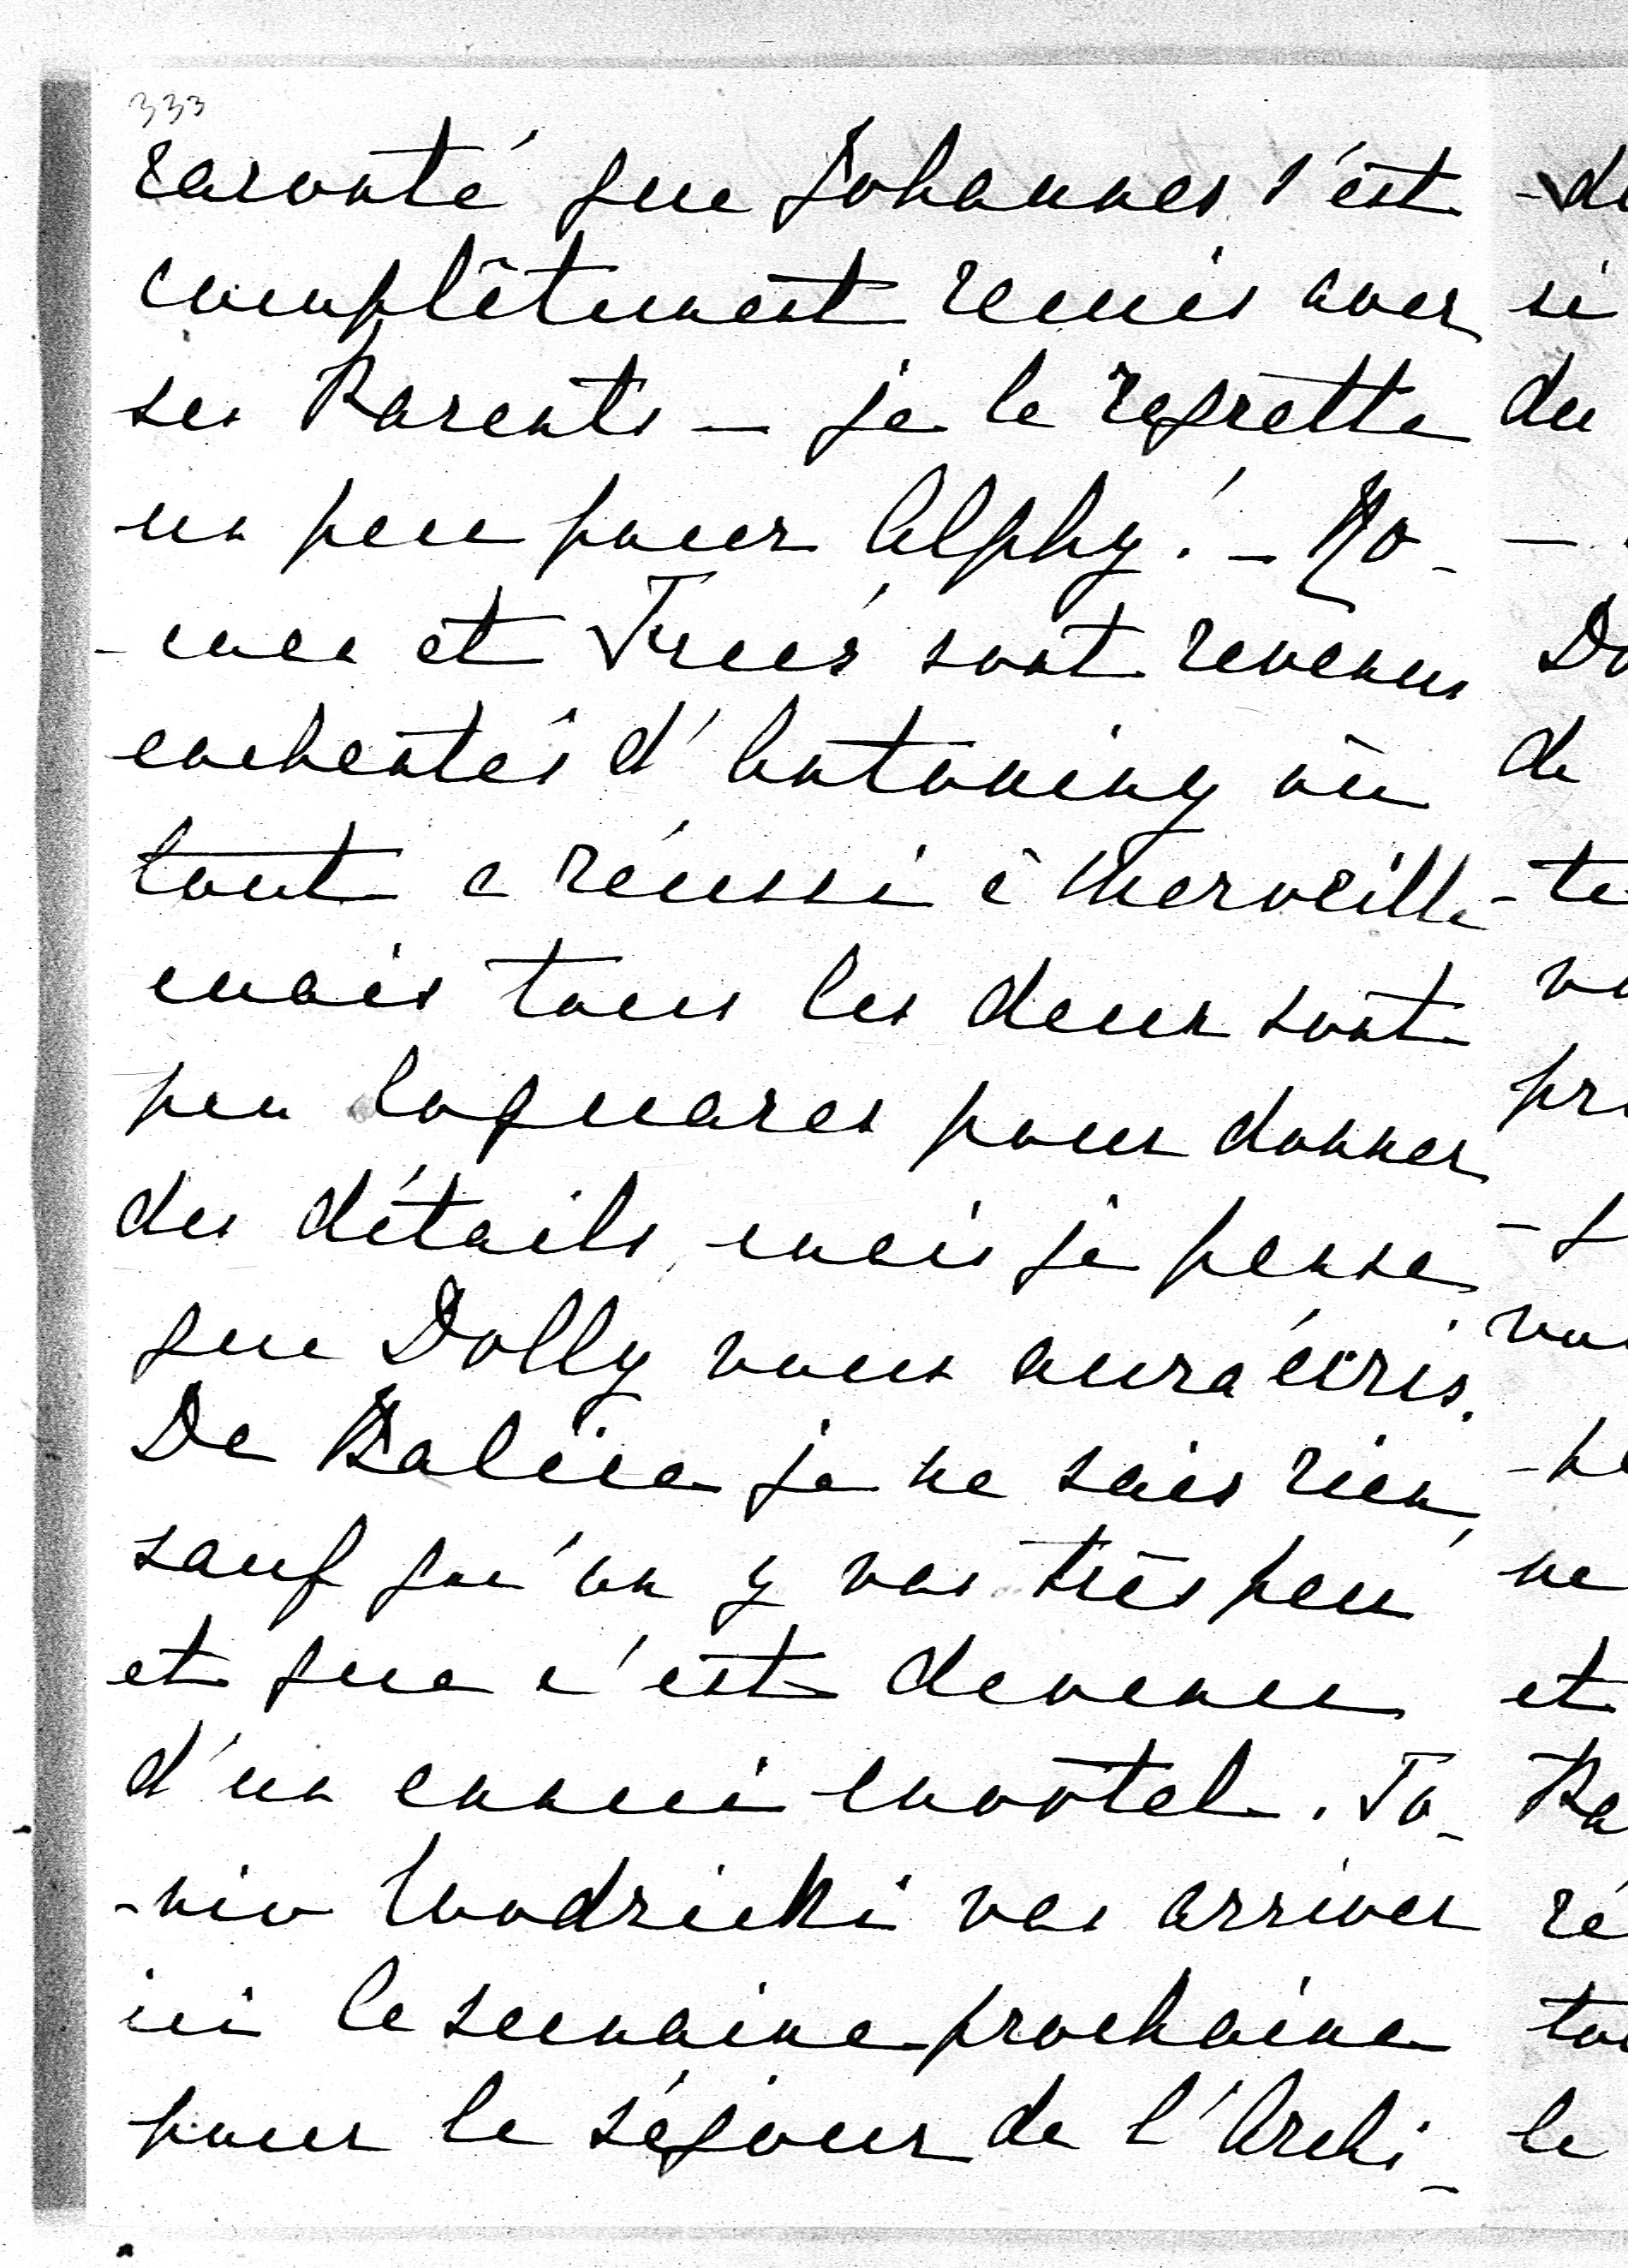 333
raconté que Johannes s'est
complètement remis avec
ses Parents — je le regrette
un peu pour Alphy! — Ro-
-man et sont revenus
enchantés d'Antoniny où
tout a réussi à merveille
mais tous les deux sont
peu loquaces pour donner
des détails, mais je pense
que Dolly vous aura écris.
De Balice je ne sais rien,
sauf qu'on y vas très peu
et que c'est devenu
d'un ennui mortel. To-
-nio Wodzicki vas arriver
ici la semaine prochaine
pour le séjour de l'Archi-